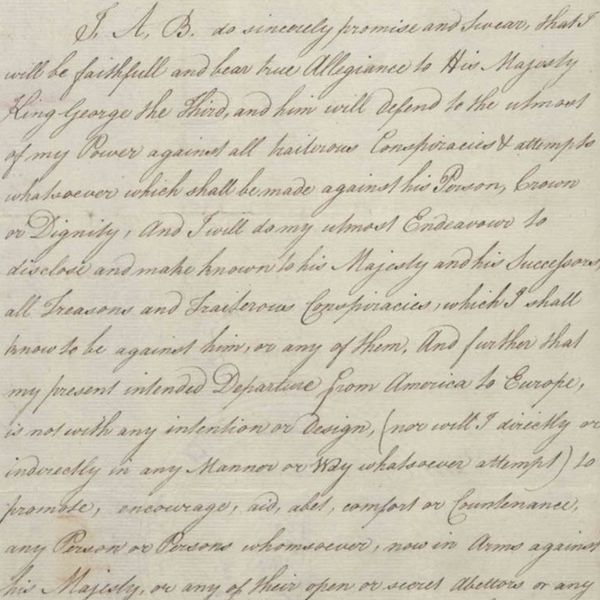 I, A, B. do sincerely promise and Swear, that I
will be faithfull and bear true Allegiance to His Majesty
King George the Third, and him will defend to the utmost
of my Power against all traiterous Conspiracies & attempts
whatsoever which shall be made against his Person, Crown
or Dignity, And I will do my utmost Endeavour to
disclose and make known to his Majesty and his Successors,
all Treasons and Traiterous Conspiracies, which I shall
know to be against him, or any of them, And further that
my present intended Departure from America to Europe,
is not with any intention or design, (nor will I directly or
indirectly in any Mannor or Way whatsoever attempt) to
promote, encourage, aid, abet, comfort or Countenance,
any Person or Persons whomsoever, now in Arms against
his Majesty, or any of their open or secret Abettors or any